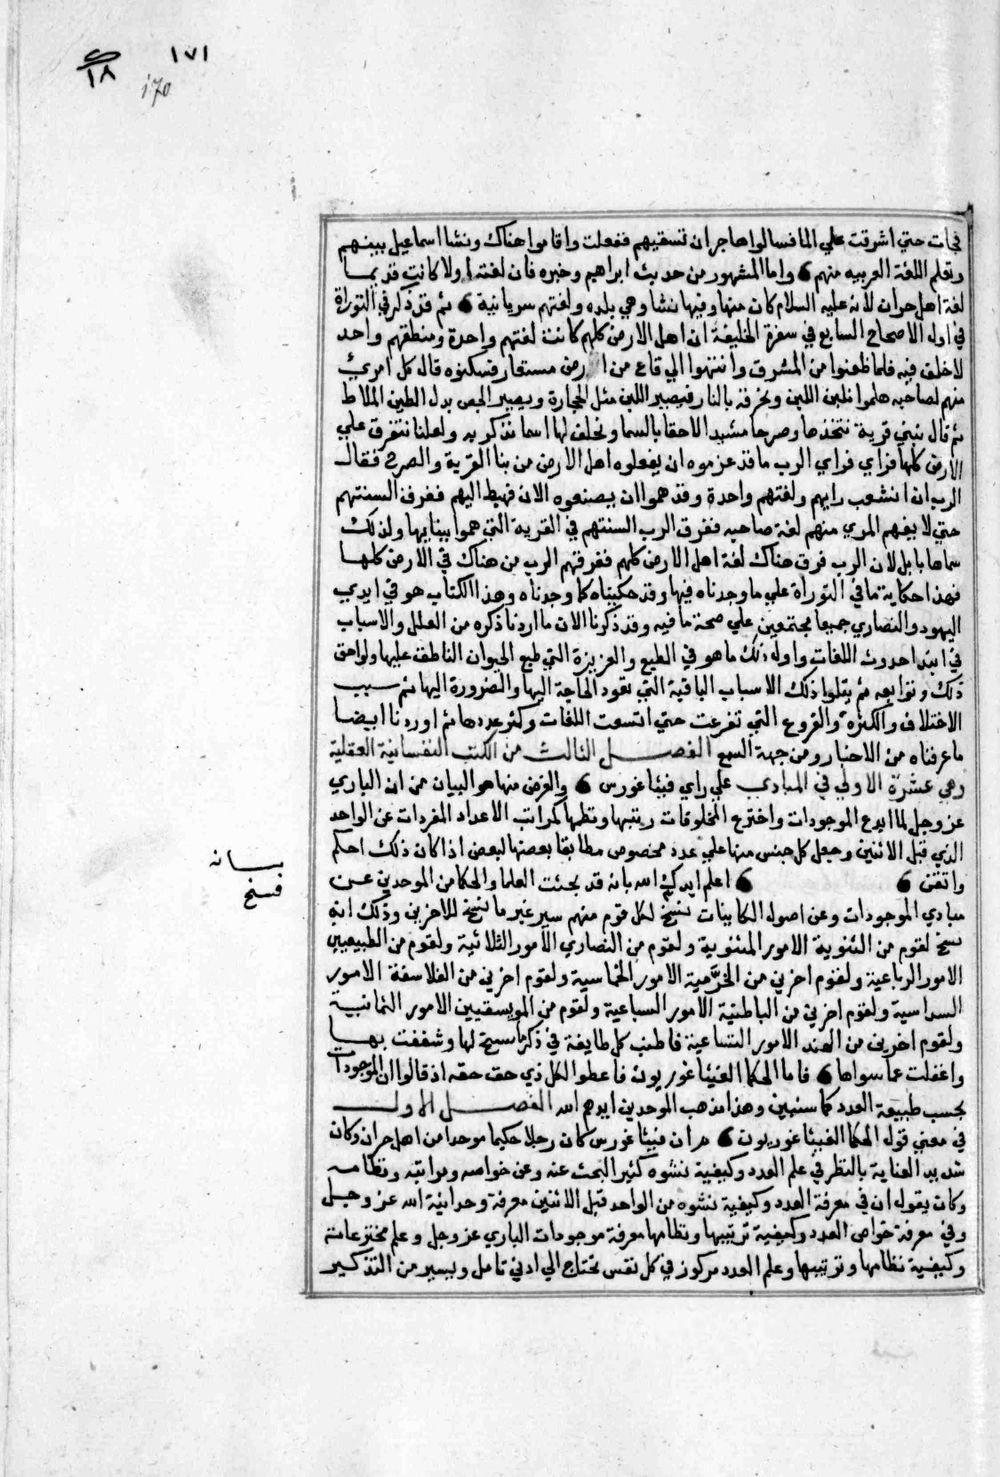 ١٧١
١٨
170
فجات حتي اشرقت علي الما فسالوا هاجر ان تسقيهم ففعلت واقاموا هناك ونشا اسماعيل بينهم
وتعلم اللغة العربيه منهم واما المشهور من حديث ابراهيم وخبره فان لغته اولا كانت قديما
لغة اهل حران لانه عليه السلام كان منها وفيها نشا وهي بلده ولغتهم سريانية ثم قد ذكر في التوراة
في اول الاصحاح السابع في سفرة الخليفة ان اهل الارض كلهم كانت لغتهم واحدة ومنطقهم واحد
لا خلف فيه فلما ظعنوا من المشرق وانتهوا الي قاع من ارض مسنعار فسكنوه قال كل امري
منهم لصاحبه هلموا نلبن اللبن ونحرقه بالنار فيصير اللبن مثل الحجارة ويصير الجص بدل الطين الملاط
ثم قال نبني قرية نتخذها وصرحا مشيد الاحقا بالسما ونخلف لها اسما نذكر به ولعلنا نتفرق علي
الارض كلها فراي فراي الرب ما قد عزموه ان يفعلوه اهل الارض من بنا القرية والصرح فقال
الرب ان انشعب رايهم ولغتهم واحدة وقد هموا ان يصنعوه الان فهبط اليهم ففرق السنتهم
حتي لا يفهم المري منهم لغة صاحبه ففرق الرب السنتهم في القرية التي هموا ببنايها ولذلك
سماها بابل لان الرب فرق هناك لغة اهل الارض كلهم ففرقهم الرب من هناك في الارض كلها
فهذا حكاية ما في التوراة علي ما وجدناه فيها وقد حكيناه كما وجدناه وهذا الكتاب هو في ايدي
اليهود والنصاري جميعا مجتمعين علي صحة ما فيه وقد ذكرنا الان ما اردنا ذكره من العلل والاسباب
في ابتدا حدوث اللغات واول ذلك ما هو في الطبع والغريزة التي طبع الحيوان الناطق عليها ولواحق
ذلك وتوابعه ثم يتلوا ذلك الاسباب الباقية التي تقود الحاجة اليها والضرورة اليها ثم سبب
الاختلاف والكثرة والفروع التي تفرعت حتي اتسعت اللغات وكثر عددها ثم اوردنا ايضا
ما عرفناه من الاخبار ومن جهة السمع الفصل الثالث من الكتب النفسانية العقلية
وهي عشرة الاولي في المبادي علي راي فيثاغورس والغرض منها هو البيان من ان الباري
عز وجل لما ابدع الموجودات واخترع المخلوقات رتبها ونظمها كمراتب الاعداد المفردات عن الواحد
الذي قبل الاثنين وجعل كل جنس منها علي عدد مخصوص مطابقا بعضها لبعض اذا كان ذلك احكم
واتقن اعلم ايدك الله بانه قد بحثت العلما والحكما من الموحدين عن
مبادي الموجودات وعن اصول الكاينات نسخ لكل قوم منهم سير غير ما نسخ للاخرين وذلك انه
نسخ لقوم من الثنوية الامور المثنوية ولقوم من النصاري الامور الثلاثية ولقوم من الطبيعيين
الامور الرباعية ولقوم اخرين من الخرمية الامور الخماسية ولقوم اخرين من الفلاسفة الامور
السداسية ولقوم اخرين من الباطنية الامور السباعية ولقوم من الموسيقيين الامور الثمانية
ولقوم اخرين من الهند الامور التساعية فاطنب كل طايفة في ذكر ما سنح لها وشغفت بها
واغفلت عما سواها فاما الحكما الفيثاغوريون فاعطوا لكل ذي حق حقه اذ قالوا ان الموجودات
بحسب طبيعة العدد كما سنبين وهذا مذهب الموحدين ايدهم الله الفصل الاول
في معني قول الحكما الفيثاغوريون هو ان فيثاغورس كان رجلا حكيما موحدا من اهل حران وكان
شديد العناية بالنظر في علم العدد وكيفية نشوه كثير البحث عنه وعن خواصه ومراتبه ونظامه
وكان يقول ان في معرفة العدد وكيفية نشوه من الواحد قبل الاثنين معرفة وحدانية الله عز وجل
وفي معرفة خواص العدد وكيفية ترتيبها ونظامها معرفة موجودات الباري عز وجل وعلم مخترعاته
وكيفية نظامها وترتيبها وعلم العدد مركوز في كل نفس يحتاج الي ادني تامل ويسير من التذكير
بسانه
فسنح